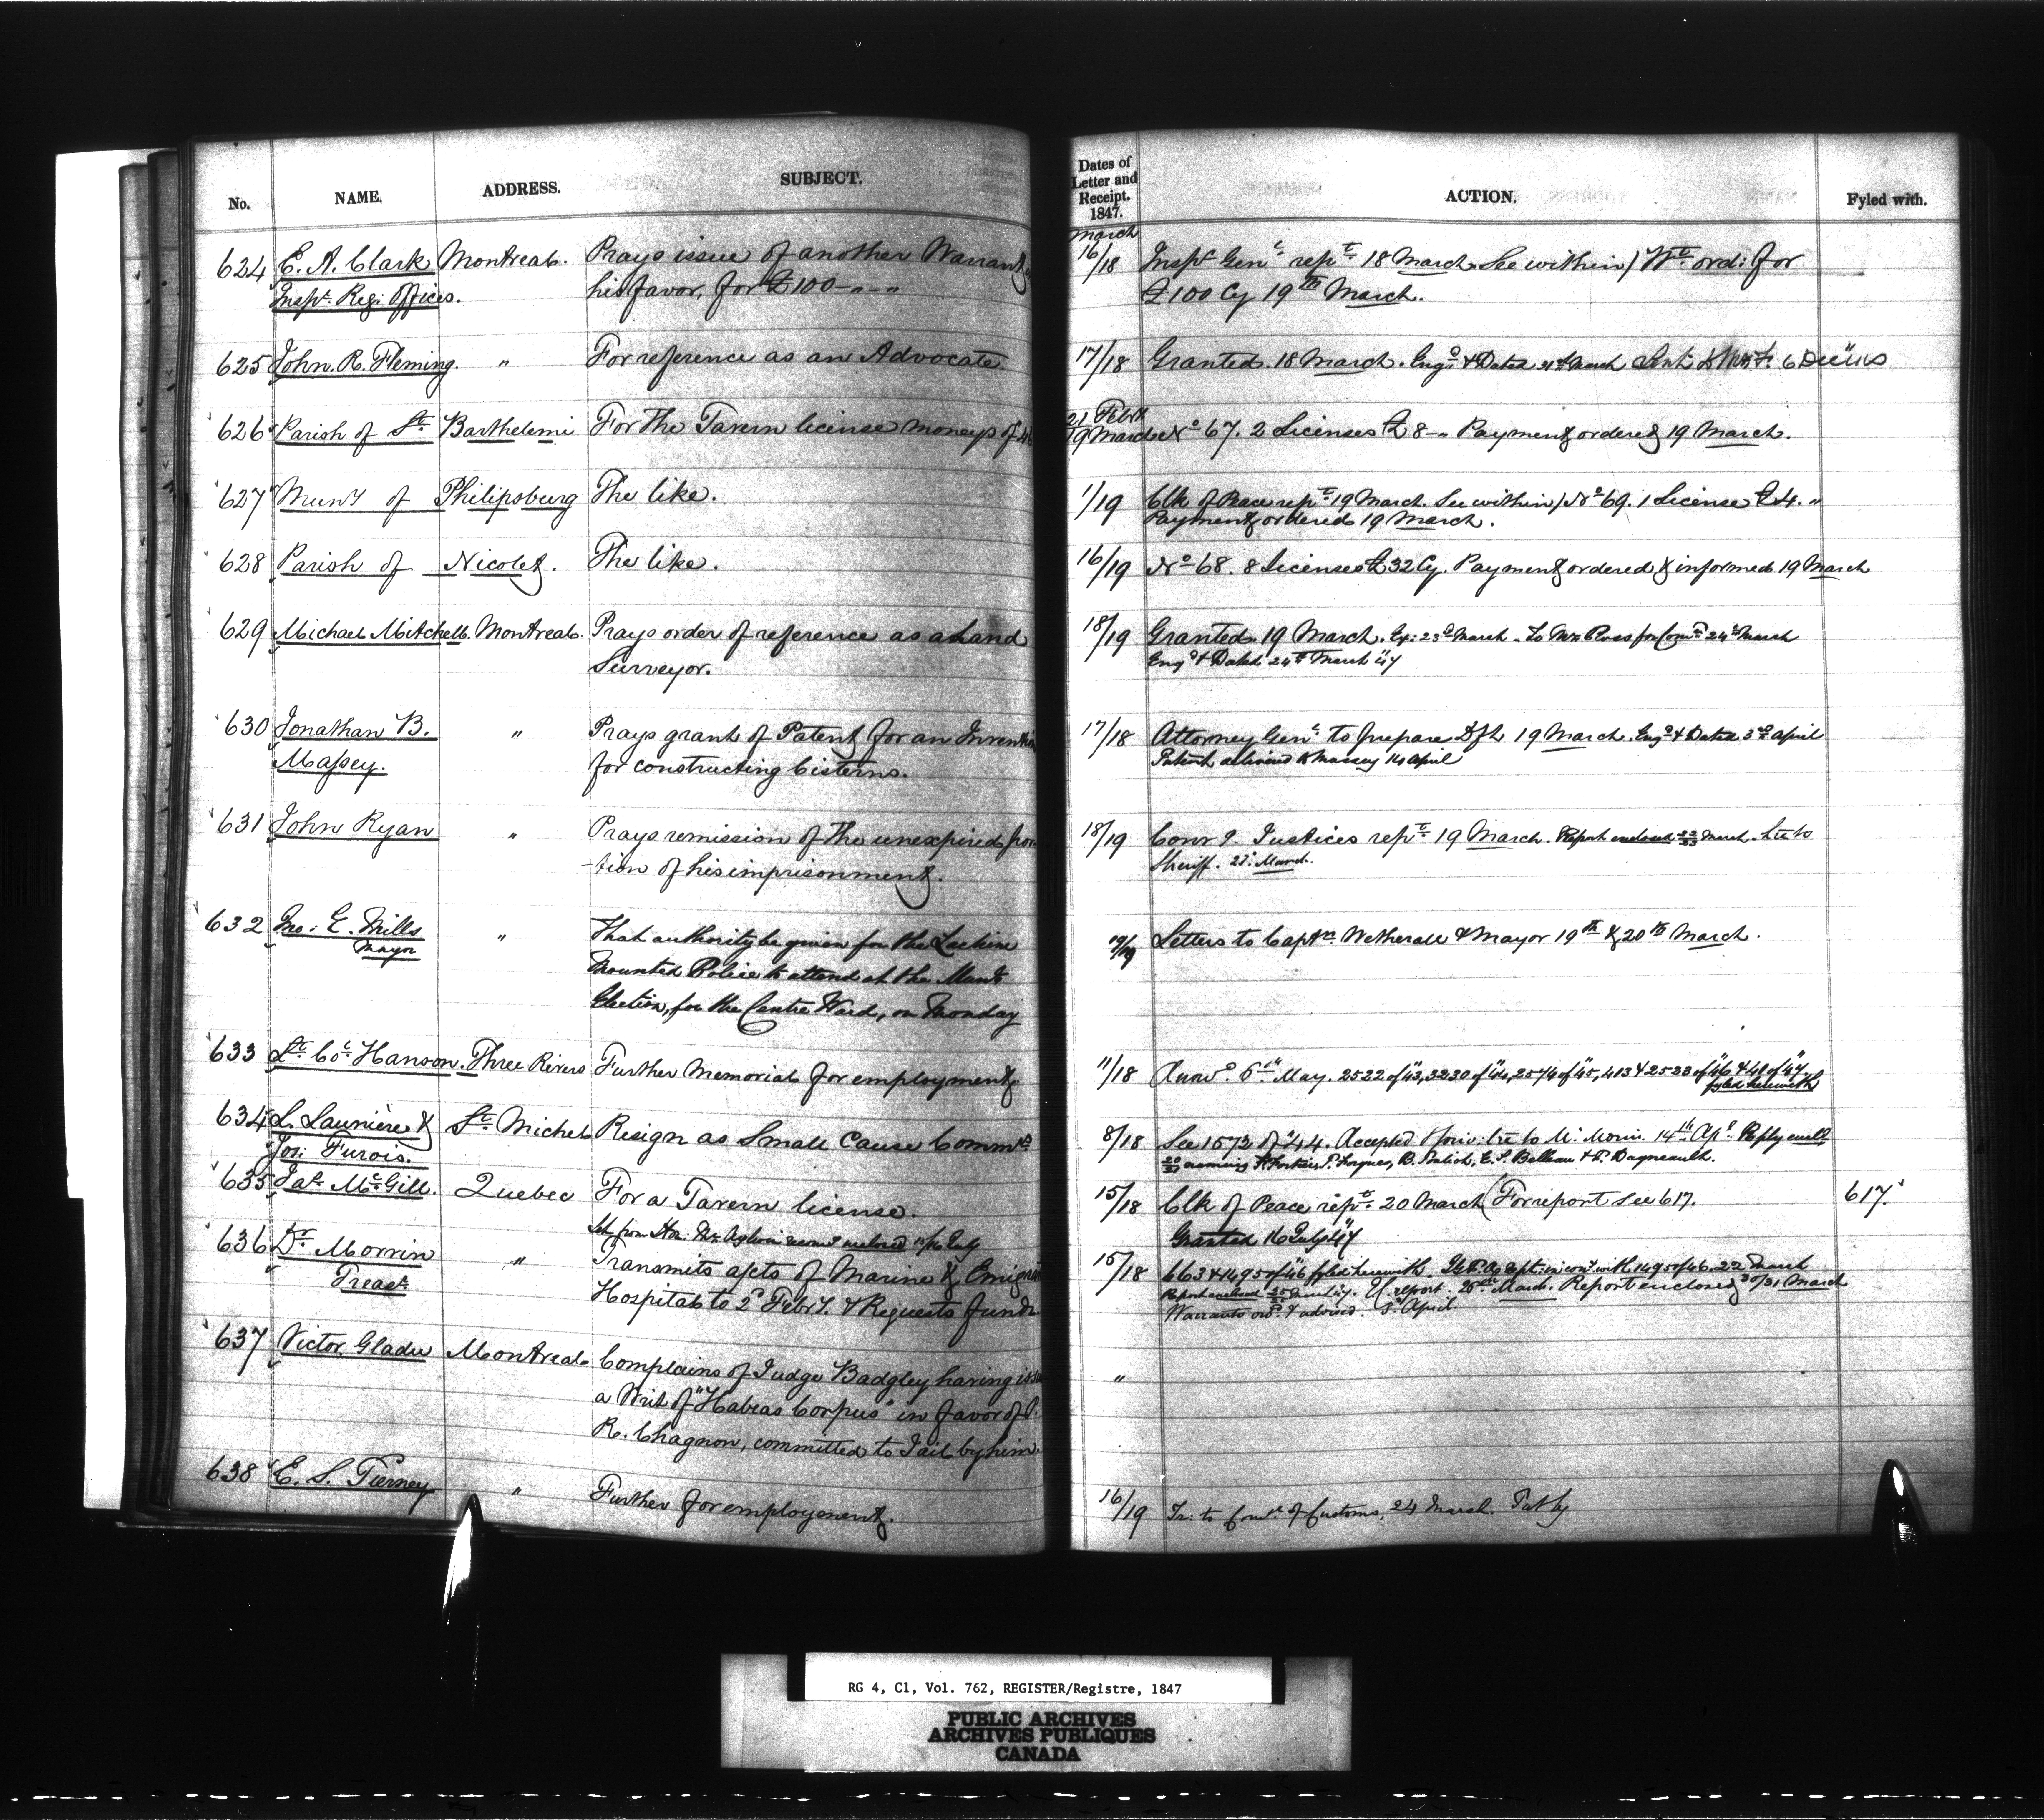 No. NAME. ADDRESS. SUBJECT.
624 E. A. Clark Montreal. Prays issue of another Warrant
Inspr. Regi: Offices. his favor, for £100-"-"
625 John. R. Fleming. " For reference as an Advocate
626 Parish of St. Barthelemi For the Tavern license moneys of
627 Muny of Philipsburg The like.
628 Parish of Nicolet. The like.
629 Michael Mitchell. Montreal. Prays order of reference as a Land
Surveyor.
630 Jonathan B. " Prays grant of Patent for an Invention
Massey. for constructing Cisterns.
631 John Ryan " Prays remission of the unexpired por
-tion of his imprisonment.
632 Jno: E. Mills " That authority be given for the Lachine
Mayor Mounted Police to attend at the Munl.
Election, for the Centre Ward, on Monday
633 Lt. Col. Hanson. Three Rivers Further Memorial for employment
634 L. Launière & St. Michel Resign as Small Cause Commrs.
Jos: Turois.
635 Jas. McGill. Quebec For a Tavern license.
636 Dr. Morrin " Transmits accts of Marine & Emigrant
Treasr. Hospital to 2d. Febry. & Requests funds
637 Victor Gladu Montreal Complains of Judge Badgley having
a Writ of "Habeas Corpus" in favor of
R. Chagnon, committed to Jail by him.
638 E. S. Tierney " Further for employment.
Dates of
Letter and
Receipt.
1847. ACTION. Fyled with.
March
16/18 Inspr Genl. rept. 18 March. See within) Wt. ord: for
£100 Cy 19th March.
17/18 Granted. 18 March. Engd. & Dated March
21 Febry
19 March No 67. 2 Licenses £8-" Payment ordered 19 March.
1/19 Clk of Peace rept. 19 March. See within) No 69. 1 License £4. "
Payment ordered 19 March.
16/19 No 68. 8 Licenses £32 Cy. Payment ordered & informed 19 March
18/19 Granted. 19 March. Ex: 23d March. To Mr. Ross for 24th March
Engd & Dated 24th March 47
17/18 Attorney Genl. to prepare Dft 19 March. Engd. & Dated 3rd April
Patent delivered to Massey 14 April
18/19 Convg. Justices rept. 19 March. Report enclosed 22/23 March.
Sheriff. 23. March.
19/19 Letters to Captn. Wetherall & Mayor 19th & 20th March.
11/18 Answd. 6th May. 2522 of 43, 3230 of 44, 2574 of 45, 413 & 2523 of 46 & 49 of 47
fyled herewith
8/18 See 1573 of 44. Accepted
15/18 Clk of Peace rept. 20 March (For report see 617. 617.
Granted 16 July 47
15/18 663 & 1495 of 46 fyled herewith. with 1495 of 46. 22 March
Report enclosed report. March. Report enclosed 30/31 March
Warrants ord. & advised. April
"
16/19 Tr: to of Customs, 24 March.
RG 4, C1, Vol. 762, REGISTER/Registre, 1847
PUBLIC ARCHIVES
ARCHIVES PUBLIQUES
CANADA